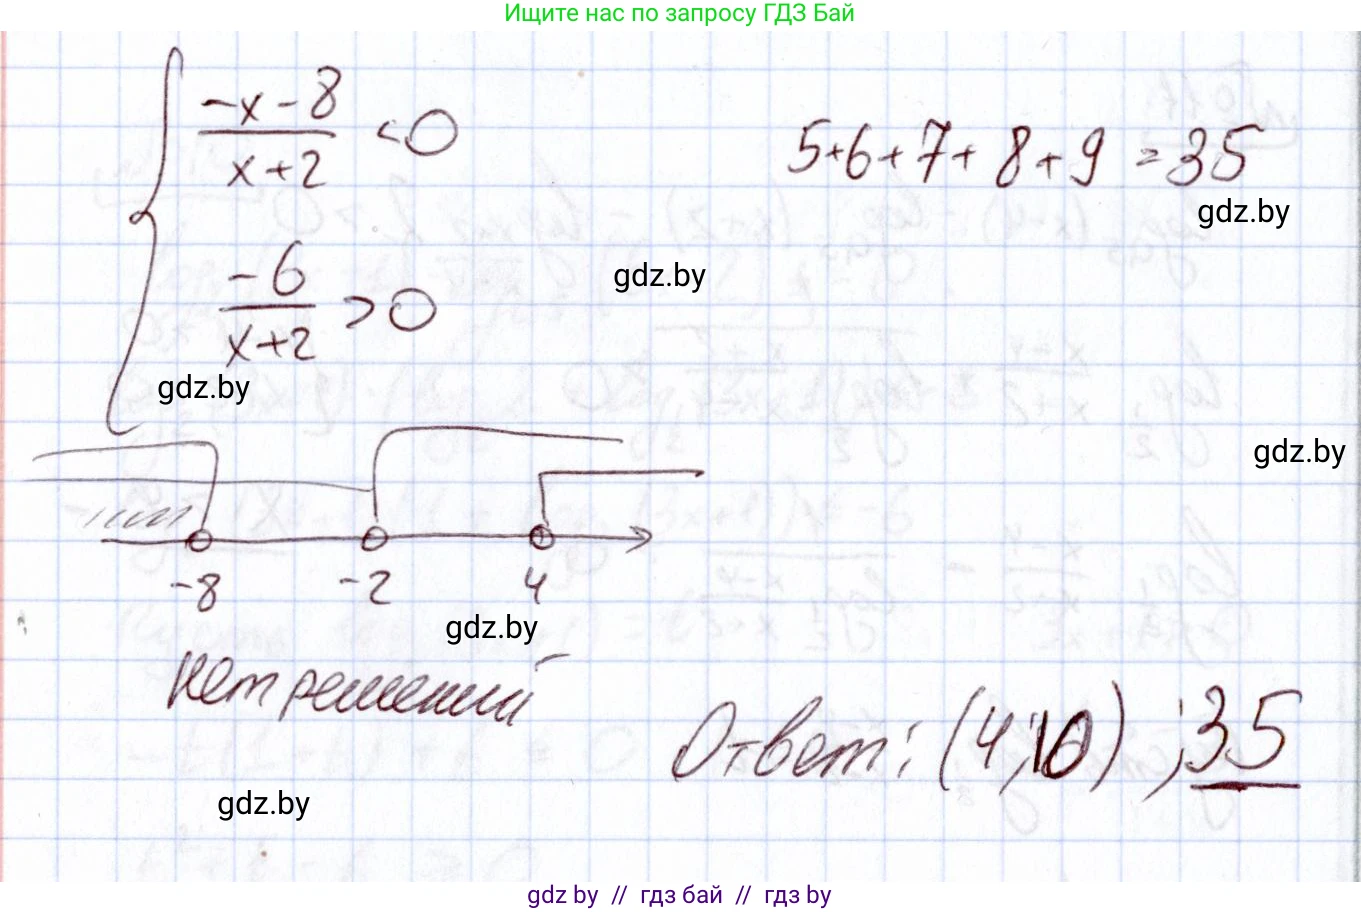 Ищите нас по запросу ГДЗ Бай
{ (-x-8)/(x+2) < 0
-6/(x+2) > 0
5+6+7+8+9 = 35
gdz.by
gdz.by
gdz.by
gdz.by
-8 -2 4
gdz.by
нет решений
Ответ: (4;10); 35
gdz.by
gdz.by // гдз бай // гдз by